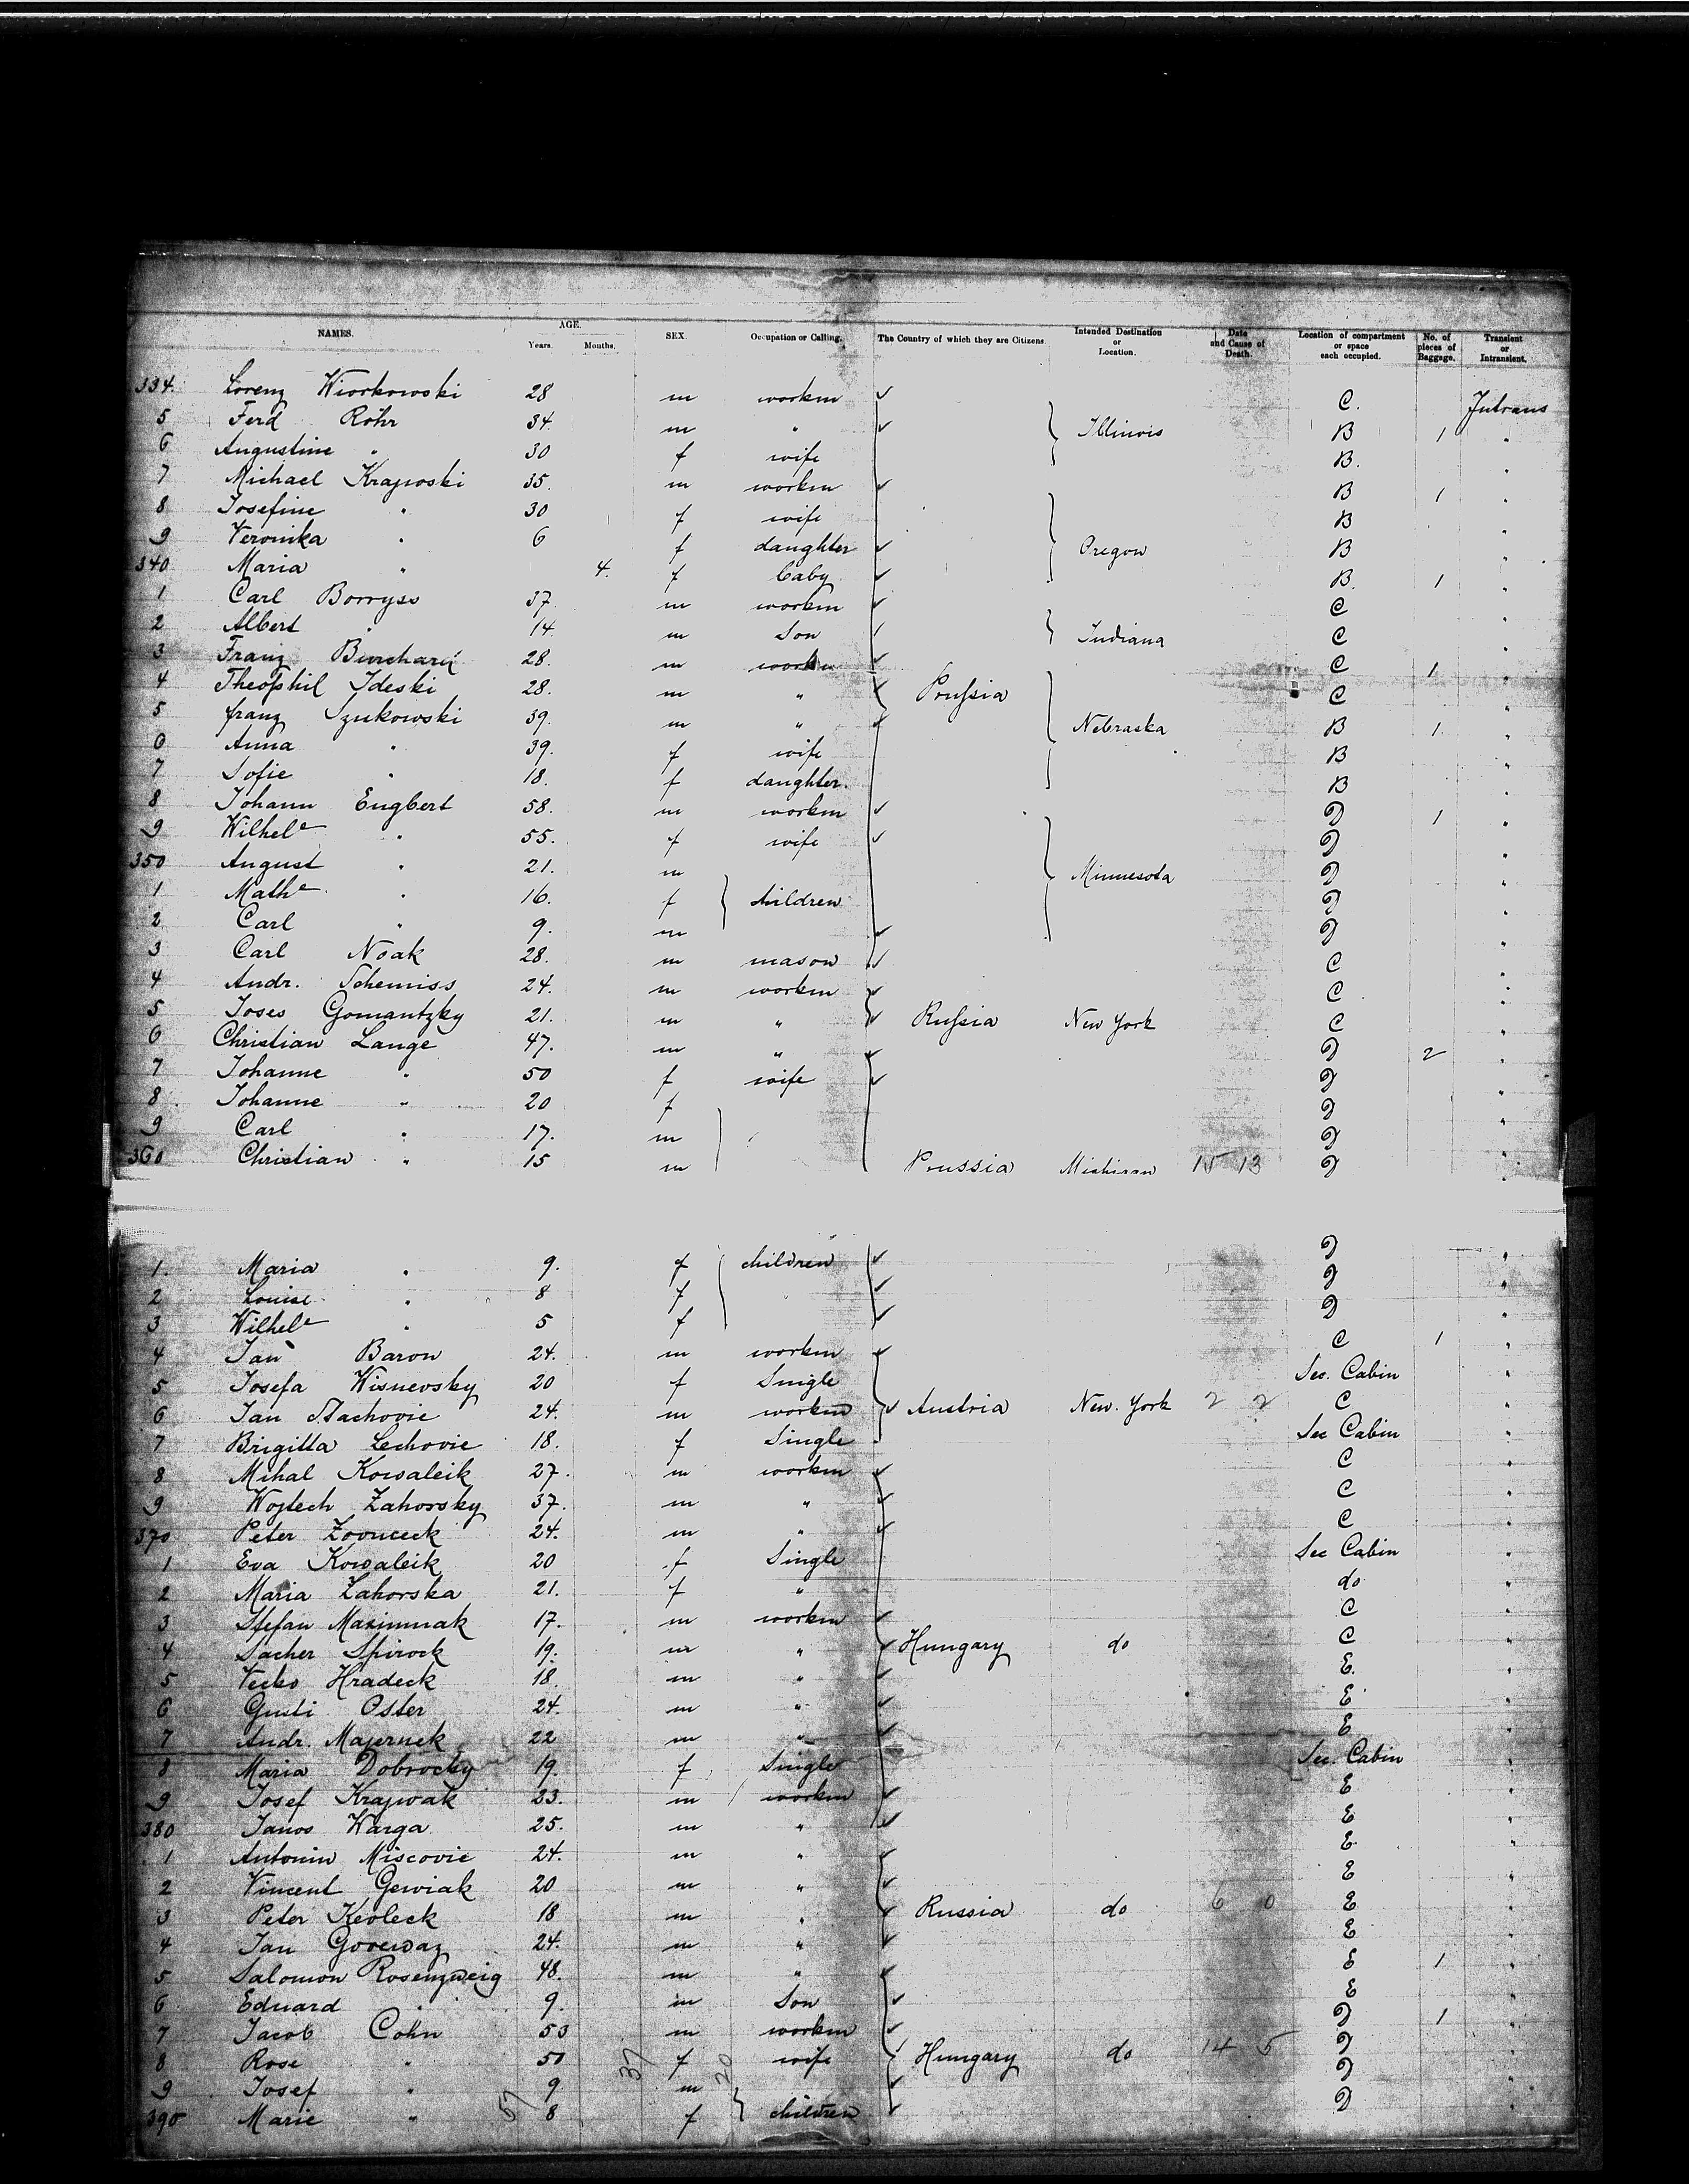 NAMES. AGE. Years. Months. SEX. Occupation or Calling. The Country of which they are Citizens. Intended Destination or Location. Date and Cause of Death. Location of compartment or space each occupied. No. of pieces of Baggage. Transient or Intransient.
334. Lorenz Wiorkowski 28 m workm C. Intrans
5 Ferd Röhr 34 m " Illinois B 1 "
6 Augustine " 30 f wife B. "
7 Michael Krajwoski 35. m workm B 1 "
8 Josefine " 30 f wife B "
9 Veronika " 6 f daughter Oregon B "
340 Maria " 4. f baby B. 1 "
1 Carl Borryss 37 m workm C "
2 Albert " 14 m Son Indiana C "
3 Franz Burchard 28. m workm C 1 "
4 Theophil Ideski 28. m " Prussia C "
5 franz Szukowski 39. m " Nebraska B 1 "
6 Anna " 39. f wife B "
7 Sofie " 18. f daughter. B "
8 Johann Engbert 58. m workm D 1 "
9 Wilhele " 55. f wife D "
350 August " 21. m D "
1 Mathe " 16. f children Minnesota D "
2 Carl " 9. m D "
3 Carl Noak 28. m mason C "
4 Andr. Schemiss 24. m workm C "
5 Joses Gomantzky 21. m " Russia New York C "
6 Christian Lange 47. m " D 2 "
7 Johanne " 50 f wife D "
8. Johanne " 20 f D "
9 Carl " 17. m D "
360 Christian " 15 m Prussia Michigan 15 13 D "
1. Maria " 9. f children D "
2 Louise " 8 f D "
3 Wilhele " 5 f D "
4 Jan Baron 24. m workm C 1 "
5 Josefa Wisnevsky 20 f Single Sec. Cabin "
6 Jan Stachovic 24. m workm Austria New. York 2 2 C "
7 Brigitta Lechovic 18. f Single Sec Cabin "
8 Mihal Kowaleik 27. m workm C "
9 Wojtech Zahorsky 37. m " C "
370 Peter 24. m " C "
1 Eva Kowaleik 20 f Single Sec Cabin "
2 Maria Zahorska 21. f " do "
3 Stefan Maximnak 17. m workm C "
4 Sacher Spirock 19. m " Hungary do C "
5 Hradeck 18. m " E. "
6 Gusti Oster 24. m " E "
7 Andr. Majernek 22 m " E "
8 Maria Dobrocky 19. f Single Sec. Cabin "
9 Josef Krajwak 23. m workm E "
380 Janos Warga 25. m " E "
1 Antonin Miscovic 24. m " E "
2 Vincent Gewiak 20 m " E "
3 Peter Keoleck 18 m " Russia do 6 0 E "
4 Jan Gorewaz 24. m " E "
5 Salomon Rosenzweig 48. m " E 1 "
6 Eduard " 9. m Son E "
7 Jacob Cohn 53 m workm D 1 "
8 Rose " 50 f wife Hungary do 14 5 D "
9 Josef " 9 m D "
390 Marie " 8 f children D "
57 37 20